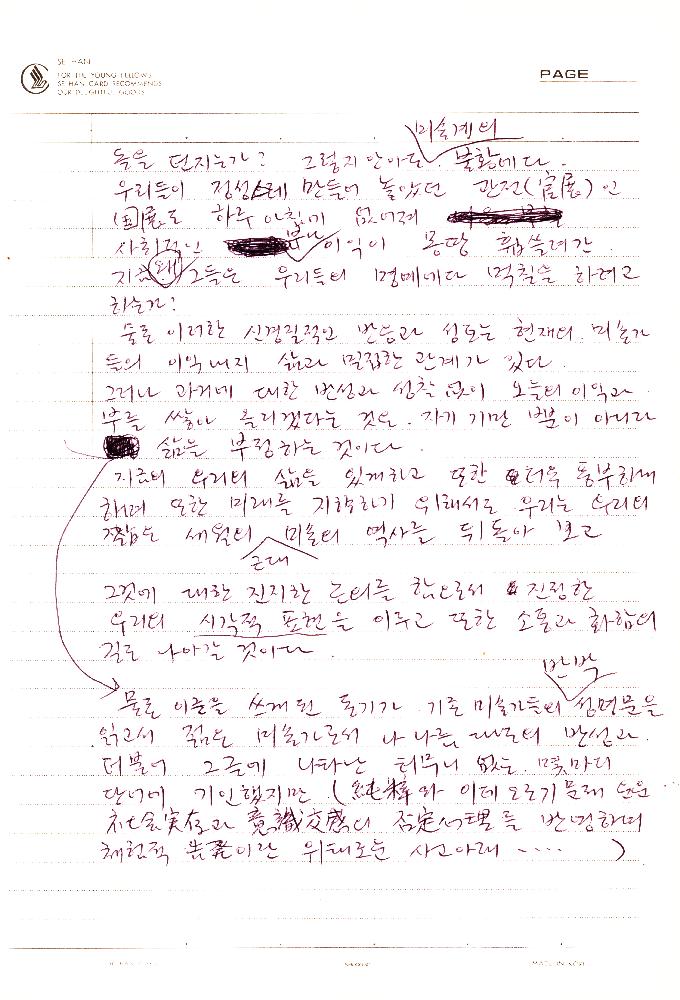 SE HAN
FOR THE YOUNG FELLOWS
SE HAN CARD RECOMMENDS
OUR DELIGHTED GOODS
PAGE
미술계의
돌을 던지는가? 그렇지 않아도 불황에다.
우리들이 정성들여 만들어 놓았던 관전(官展)인
(国展)도 하루 아침에 없어져
사회적인 부나 이익이 몽땅 휩쓸려간
지금 왜 그들은 우리들의 명예에다 먹칠을 하려고
하는가?
물론 이러한 신경질적인 반응과 성토는 현재의 미술가
들의 이익 내지 삶과 밀접한 관계가 있다.
그러나 과거에 대한 반성과 성찰 없이 오늘의 이익과
부를 쌓아 올리겠다는 것은 자기 기만 뿐이 아니라
삶을 부정하는 것이다.
지금의 우리의 삶을 있게하고 또한 더욱 풍부하게
하며 또한 미래를 지향하기 위해서도 우리는 우리의
짧은 세월의 미술의 역사를 뒤돌아 보고
근대
그것에 대한 진지한 논의를 함으로서 진정한
우리의 시각적 표현을 이루고 또한 소통과 화합의
길로 나아갈 것이다.
반박
물론 이글을 쓰게 된 동기가 기존 미술가들의 성명문을
읽고서 젊은 미술가로서 나 나름대로의 반성과
더불어 그글에 나타난 터무니 없는 몇마디
단어에 기인했지만 (純粹와 이데오로기 문제
社会実存과 意識交感의 否定心理를 반영하며
체험적 이란 위태로운 사고아래 ····· )